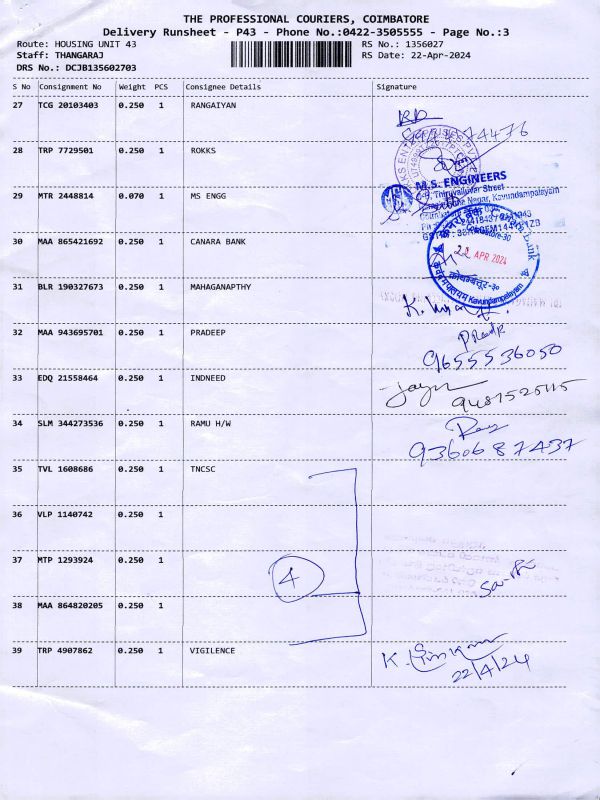 THE PROFESSIONAL COURIERS, COIMBATORE
Delivery Runsheet - P43 - Phone No.:0422-3505555 - Page No.:3
Route: HOUSING UNIT 43 RS No.: 1356027
Staff: THANGARAJ RS Date: 22-Apr-2024
DRS No.: DCJB135602703
S No Consignment No Weight PCS Consignee Details Signature
27 TCG 20103403 0.250 1 RANGAIYAN
28 TRP 7729501 0.250 1 ROKKS
M.S. ENGINEERS
Thiruvalluvar Street
Nagar, Kavundampalayam
29 MTR 2448814 0.070 1 MS ENGG
30 MAA 865421692 0.250 1 CANARA BANK
22 APR 2024
Kavundampalayam
31 BLR 190327673 0.250 1 MAHAGANAPTHY
32 MAA 943695701 0.250 1 PRADEEP
9655536050
33 EDQ 21558464 0.250 1 INDNEED
34 SLM 344273536 0.250 1 RAMU H/W
9360687437
35 TVL 1608686 0.250 1 TNCSC
36 VLP 1140742 0.250 1
37 MTP 1293924 0.250 1
4
38 MAA 864820205 0.250 1
39 TRP 4907862 0.250 1 VIGILENCE
22/4/24